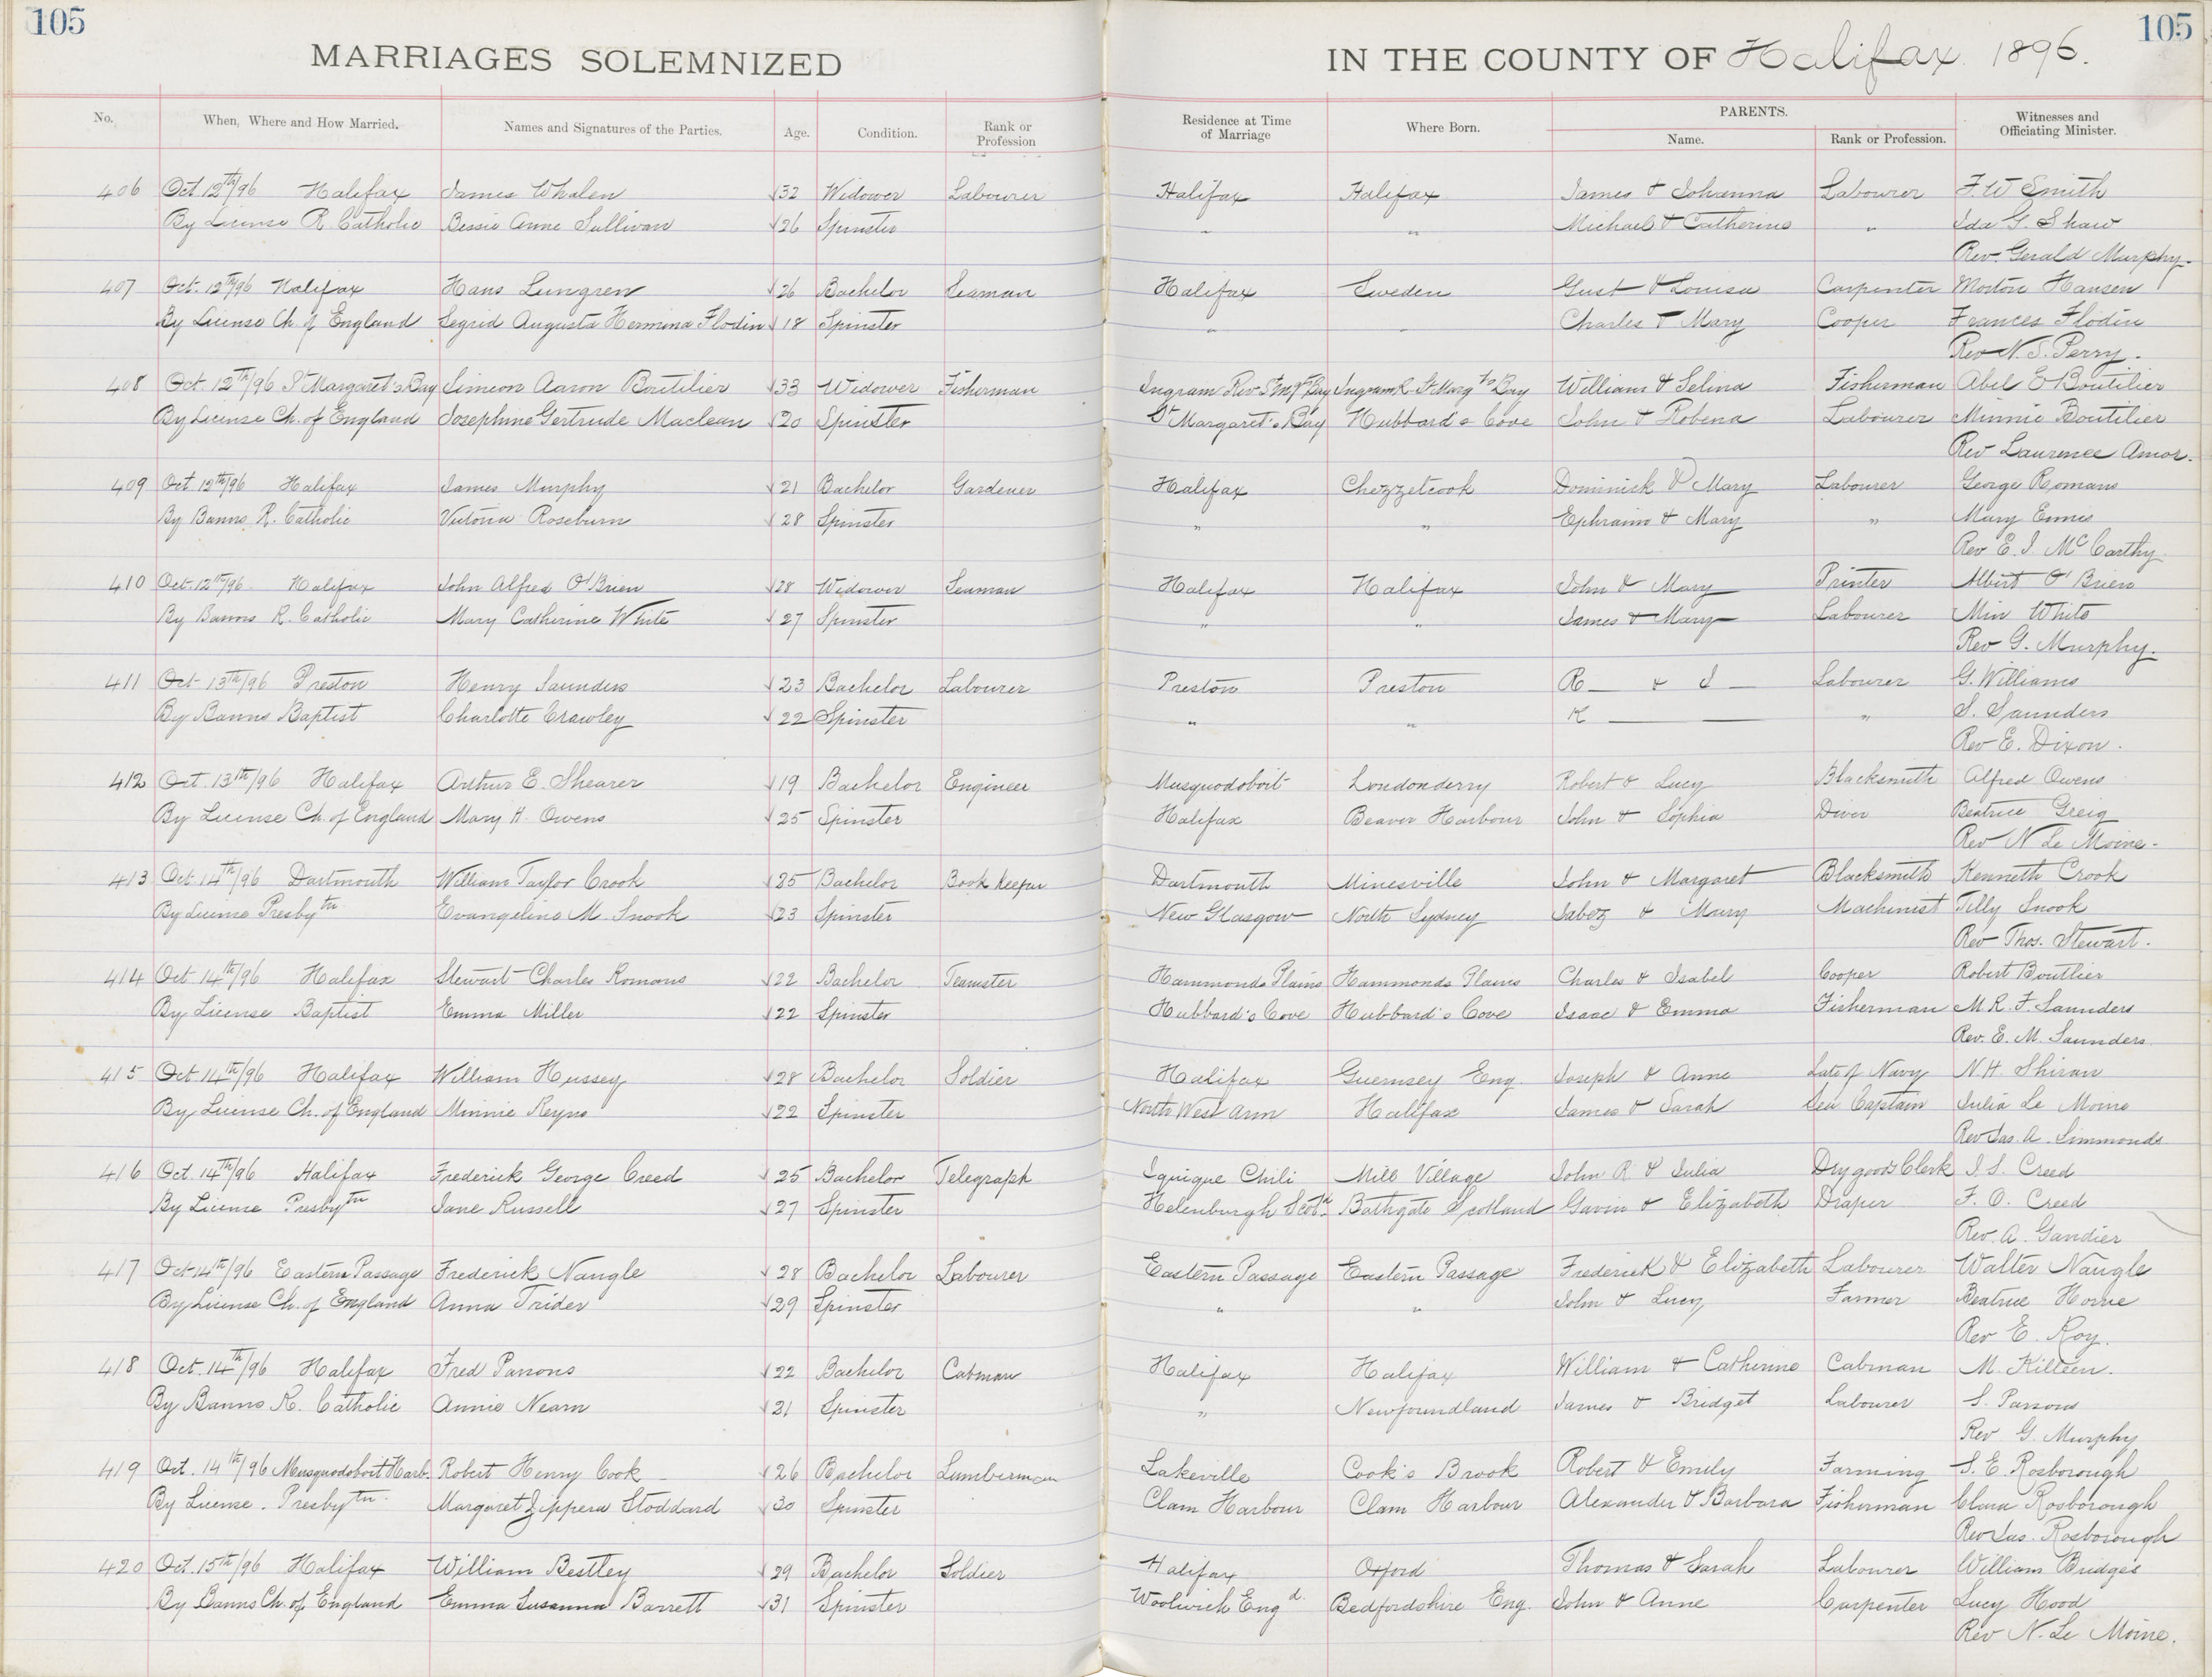 105
105
MARRIAGES SOLEMNIZED
IN THE COUNTY OF Halifax 1896.
No. When, Where and How Married. Names and Signatures of the Parties. Age. Condition. Rank or Profession Residence at Time of Marriage Where Born. PARENTS. Name. Rank or Profession. Witnesses and Officiating Minister.
406 Oct 12th/96 Halifax James Whalen 32 Widower Labourer Halifax Halifax James & Johanna Labourer F. W Smith
By License R. Catholic Bessie Anne Sullivan 26 Spinster " " Michael & Catherine " Ida G. Shaw
Rev. Gerald Murphy
407 Oct. 12th/96 Halifax Hans Lungren 26 Bachelor Seaman Halifax Sweden Gust & Louisa Carpenter Morton Hansen
By License Ch. of England Segrid Augusta Hermina Flodin 18 Spinster " " Charles & Mary Cooper Frances Flodin
Rev N. S. Perry.
408 Oct. 12th/96 St Margaret's Bay Simeon Aaron Boutilier 33 Widower Fisherman Ingram Riv St Mgts Bay Ingram R. St Margts Bay William & Selina Fisherman Abel E Boutilier
By License Ch. of England Josephine Gertrude Maclean 20 Spinster St Margaret's Bay Hubbard's Cove John & Robena Labourer Minnie Boutilier
Rev Laurence Amor.
409 Oct. 12th/96 Halifax James Murphy 21 Bachelor Gardener Halifax Chezzetcook Dominick & Mary Labourer George Romans
By Banns R. Catholic Victoria Roseburn 28 Spinster " " Ephraim & Mary " Mary Ennis
Rev E. J. McCarthy
410 Oct. 12th/96 Halifax John Alfred O'Brien 28 Widower Seaman Halifax Halifax John & Mary Printer Albert O'Brien
By Banns R. Catholic Mary Catherine White 27 Spinster " " James & Mary Labourer Min White
Rev G. Murphy.
411 Oct 13th/96 Preston Henry Saunders 23 Bachelor Labourer Preston Preston R— & J— Labourer G. Williams
By Banns Baptist Charlotte Crawley 22 Spinster " " K — — " S. Saunders
Rev E. Dixon.
412 Oct. 13th/96 Halifax Arthur E. Shearer 19 Bachelor Engineer Musquodoboit Londonderry Robert & Lucy Blacksmith Alfred Owens
By License Ch. of England Mary H. Owens 25 Spinster Halifax Beaver Harbour John & Sophia Diver Beatrice Greig
Rev N Le Moine.
413 Oct. 14th/96 Dartmouth William Taylor Crook 25 Bachelor Book keeper Dartmouth Minesville John & Margaret Blacksmith Kenneth Crook
By License Presbytn Evangeline M. Snook 23 Spinster New Glasgow North Sydney Jabez & Mary Machinist Tilly Snook
Rev Thos. Stewart.
414 Oct 14th/96 Halifax Stewart Charles Romans 22 Bachelor Teamster Hammonds Plains Hammonds Plains Charles & Isabel Cooper Robert Boutlier
By License Baptist Emma Miller 22 Spinster Hubbard's Cove Hubbard's Cove Isaac & Emma Fisherman M. R. F. Saunders
Rev. E. M. Saunders
415 Oct. 14th/96 Halifax William Hussey 28 Bachelor Soldier Halifax Guernsey Eng. Joseph & Anne Late of Navy N. H. Shiran
By License Ch. of England Minnie Reyno 22 Spinster North West Arm Halifax James & Sarah Sea Captain Julia Le Moine
Rev Jas. A. Simmonds
416 Oct. 14th/96 Halifax Frederick George Creed 25 Bachelor Telegraph Iquique Chili Mill Village John R & Julia Dry goods Clerk J. S. Creed
By License Presbytn Jane Russell 27 Spinster Helenburgh Scotd Bathgate Scotland Gavin & Elizabeth Draper F. O. Creed
Rev. A. Gandier
417 Oct 14th/96 Eastern Passage Frederick Naugle 28 Bachelor Labourer Eastern Passage Eastern Passage Frederick & Elizabeth Labourer Walter Naugle
By License Ch. of England Anna Trider 29 Spinster " " John & Lucy Farmer Beatrice Horne
Rev E. Roy.
418 Oct. 14th/96 Halifax Fred Parsons 22 Bachelor Cabman Halifax Halifax William & Catherine Cabman M. Killeen.
By Banns R. Catholic Annie Nearn 21 Spinster " Newfoundland James & Bridget Labourer S. Parsons
Rev G. Murphy
419 Oct. 14th/96 Musquodoboit Harb. Robert Henry Cook 26 Bachelor Lumberman Lakeville Cook's Brook Robert & Emily Farming S. E. Rosborough
By License. Presbytn. Margaret Zippera Stoddard 30 Spinster Clam Harbour Clam Harbour Alexander & Barbara Fisherman Clara Rosborough
Rev Jas. Rosborough
420 Oct. 15th/96 Halifax William Bestley 29 Bachelor Soldier Halifax Oxford Thomas & Sarah Labourer William Bridges
By Banns Ch. of England Emma Susanna Barrett 31 Spinster Woolwich Engd. Bedfordshire Eng. John & Anne Carpenter Lucy Hood
Rev N. Le Moine.